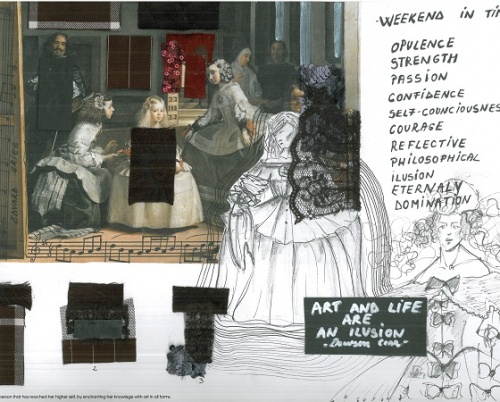 ·WEEKEND IN TI
OPULENCE
STRENGTH
PASSION
CONFIDENCE
SELF-COUNCIOUSNES
COURAGE
REFLECTIVE
PHILOSOPHICAL
ILUSION
ETERNALY
DOMINATION
ART AND LIFE
ARE
AN ILUSION
2
3
person that has reached her higher self, by enchanting her knowlege with art in all forms.